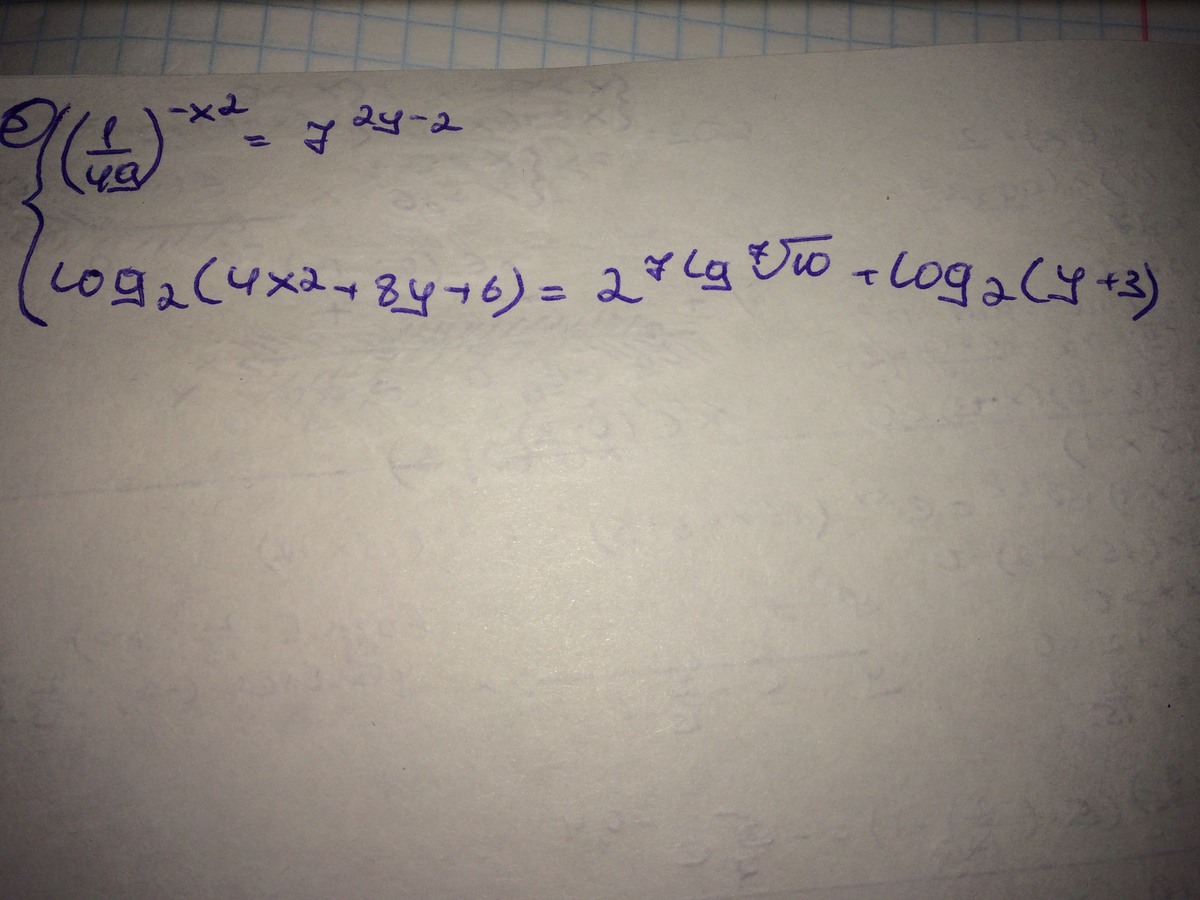 б) (1/49)^{-x2} = 7^{2y-2}
log₂(4x2+8y+6) = 2^{7 lg ⁷√10} + log₂(y+3)